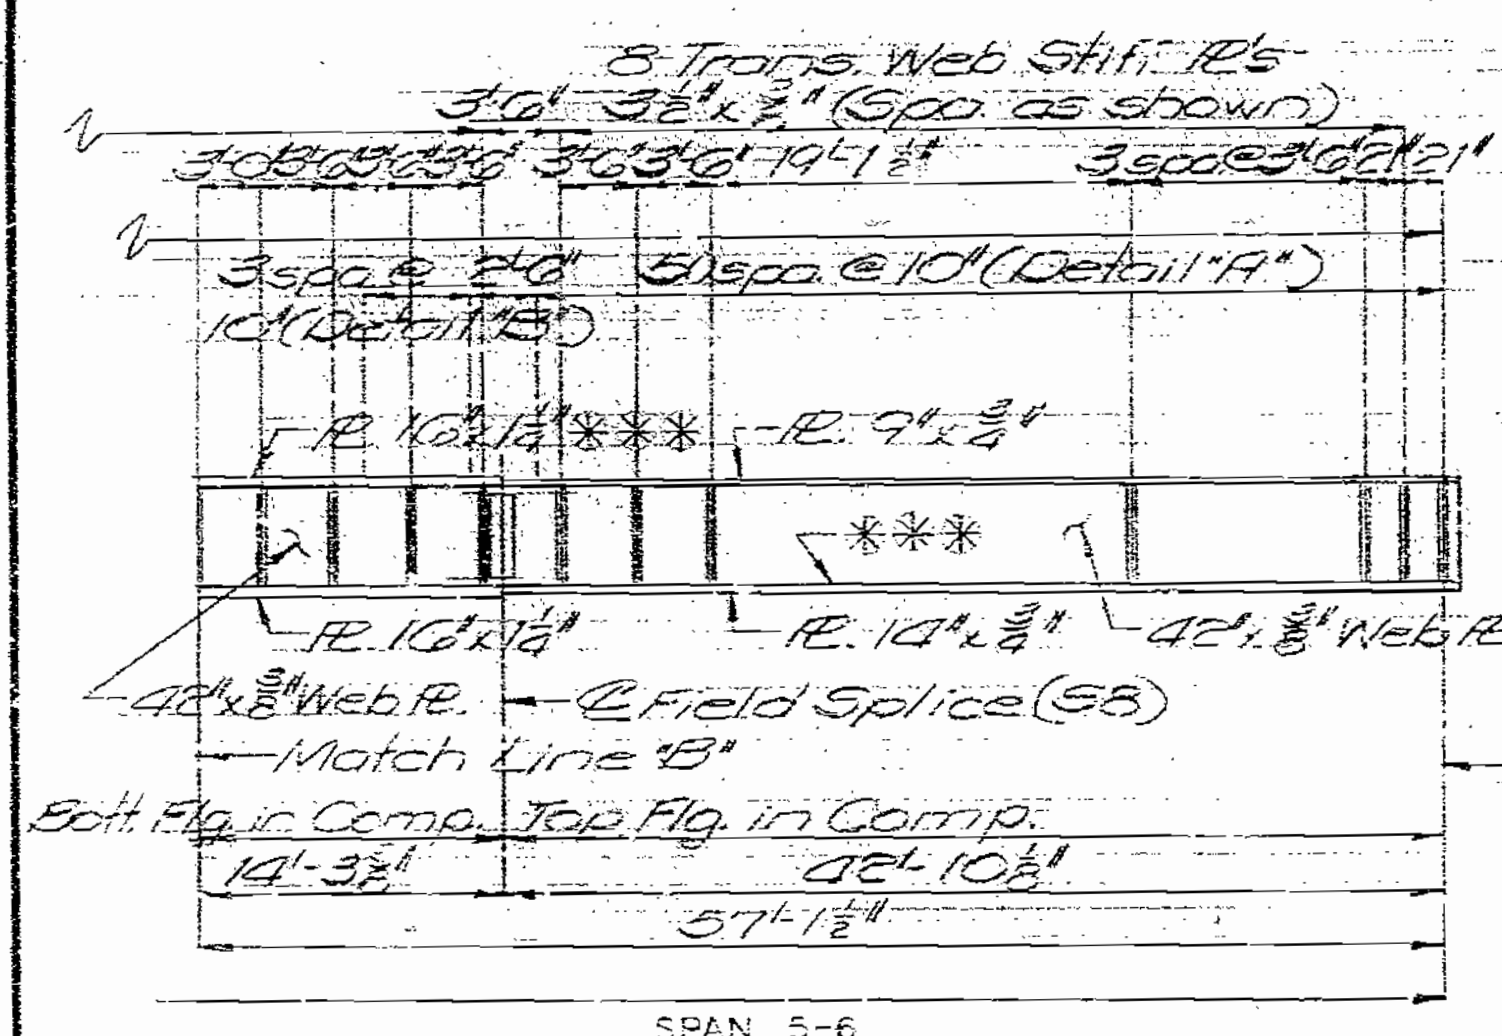 8-Trans. Web Stiff. PL's
3'-6" 3½" x ⅜" (Spa. as shown)
3'-0" 3'-6" 3'-6" 3'-6" 3'-6" 3'-6" 19'-1½" 3 spa. @ 3'-6" 21" 21"
3 spa @ 2'-6" 50 spa. @ 10" (Detail "A")
10" (Detail "B")
PL. 16" x 1¼" *** PL. 9" x ¾"
***
PL. 16" x 1¼" PL. 14" x ¾" 42" x ⅜" Web PL
42" x ⅜" Web PL. ℄ Field Splice (S8)
Match Line "B"
Bott. Flg. in Comp. Top Flg. in Comp.
14'-3⅜" 42'-10⅛"
57'-1½"
SPAN 5-6